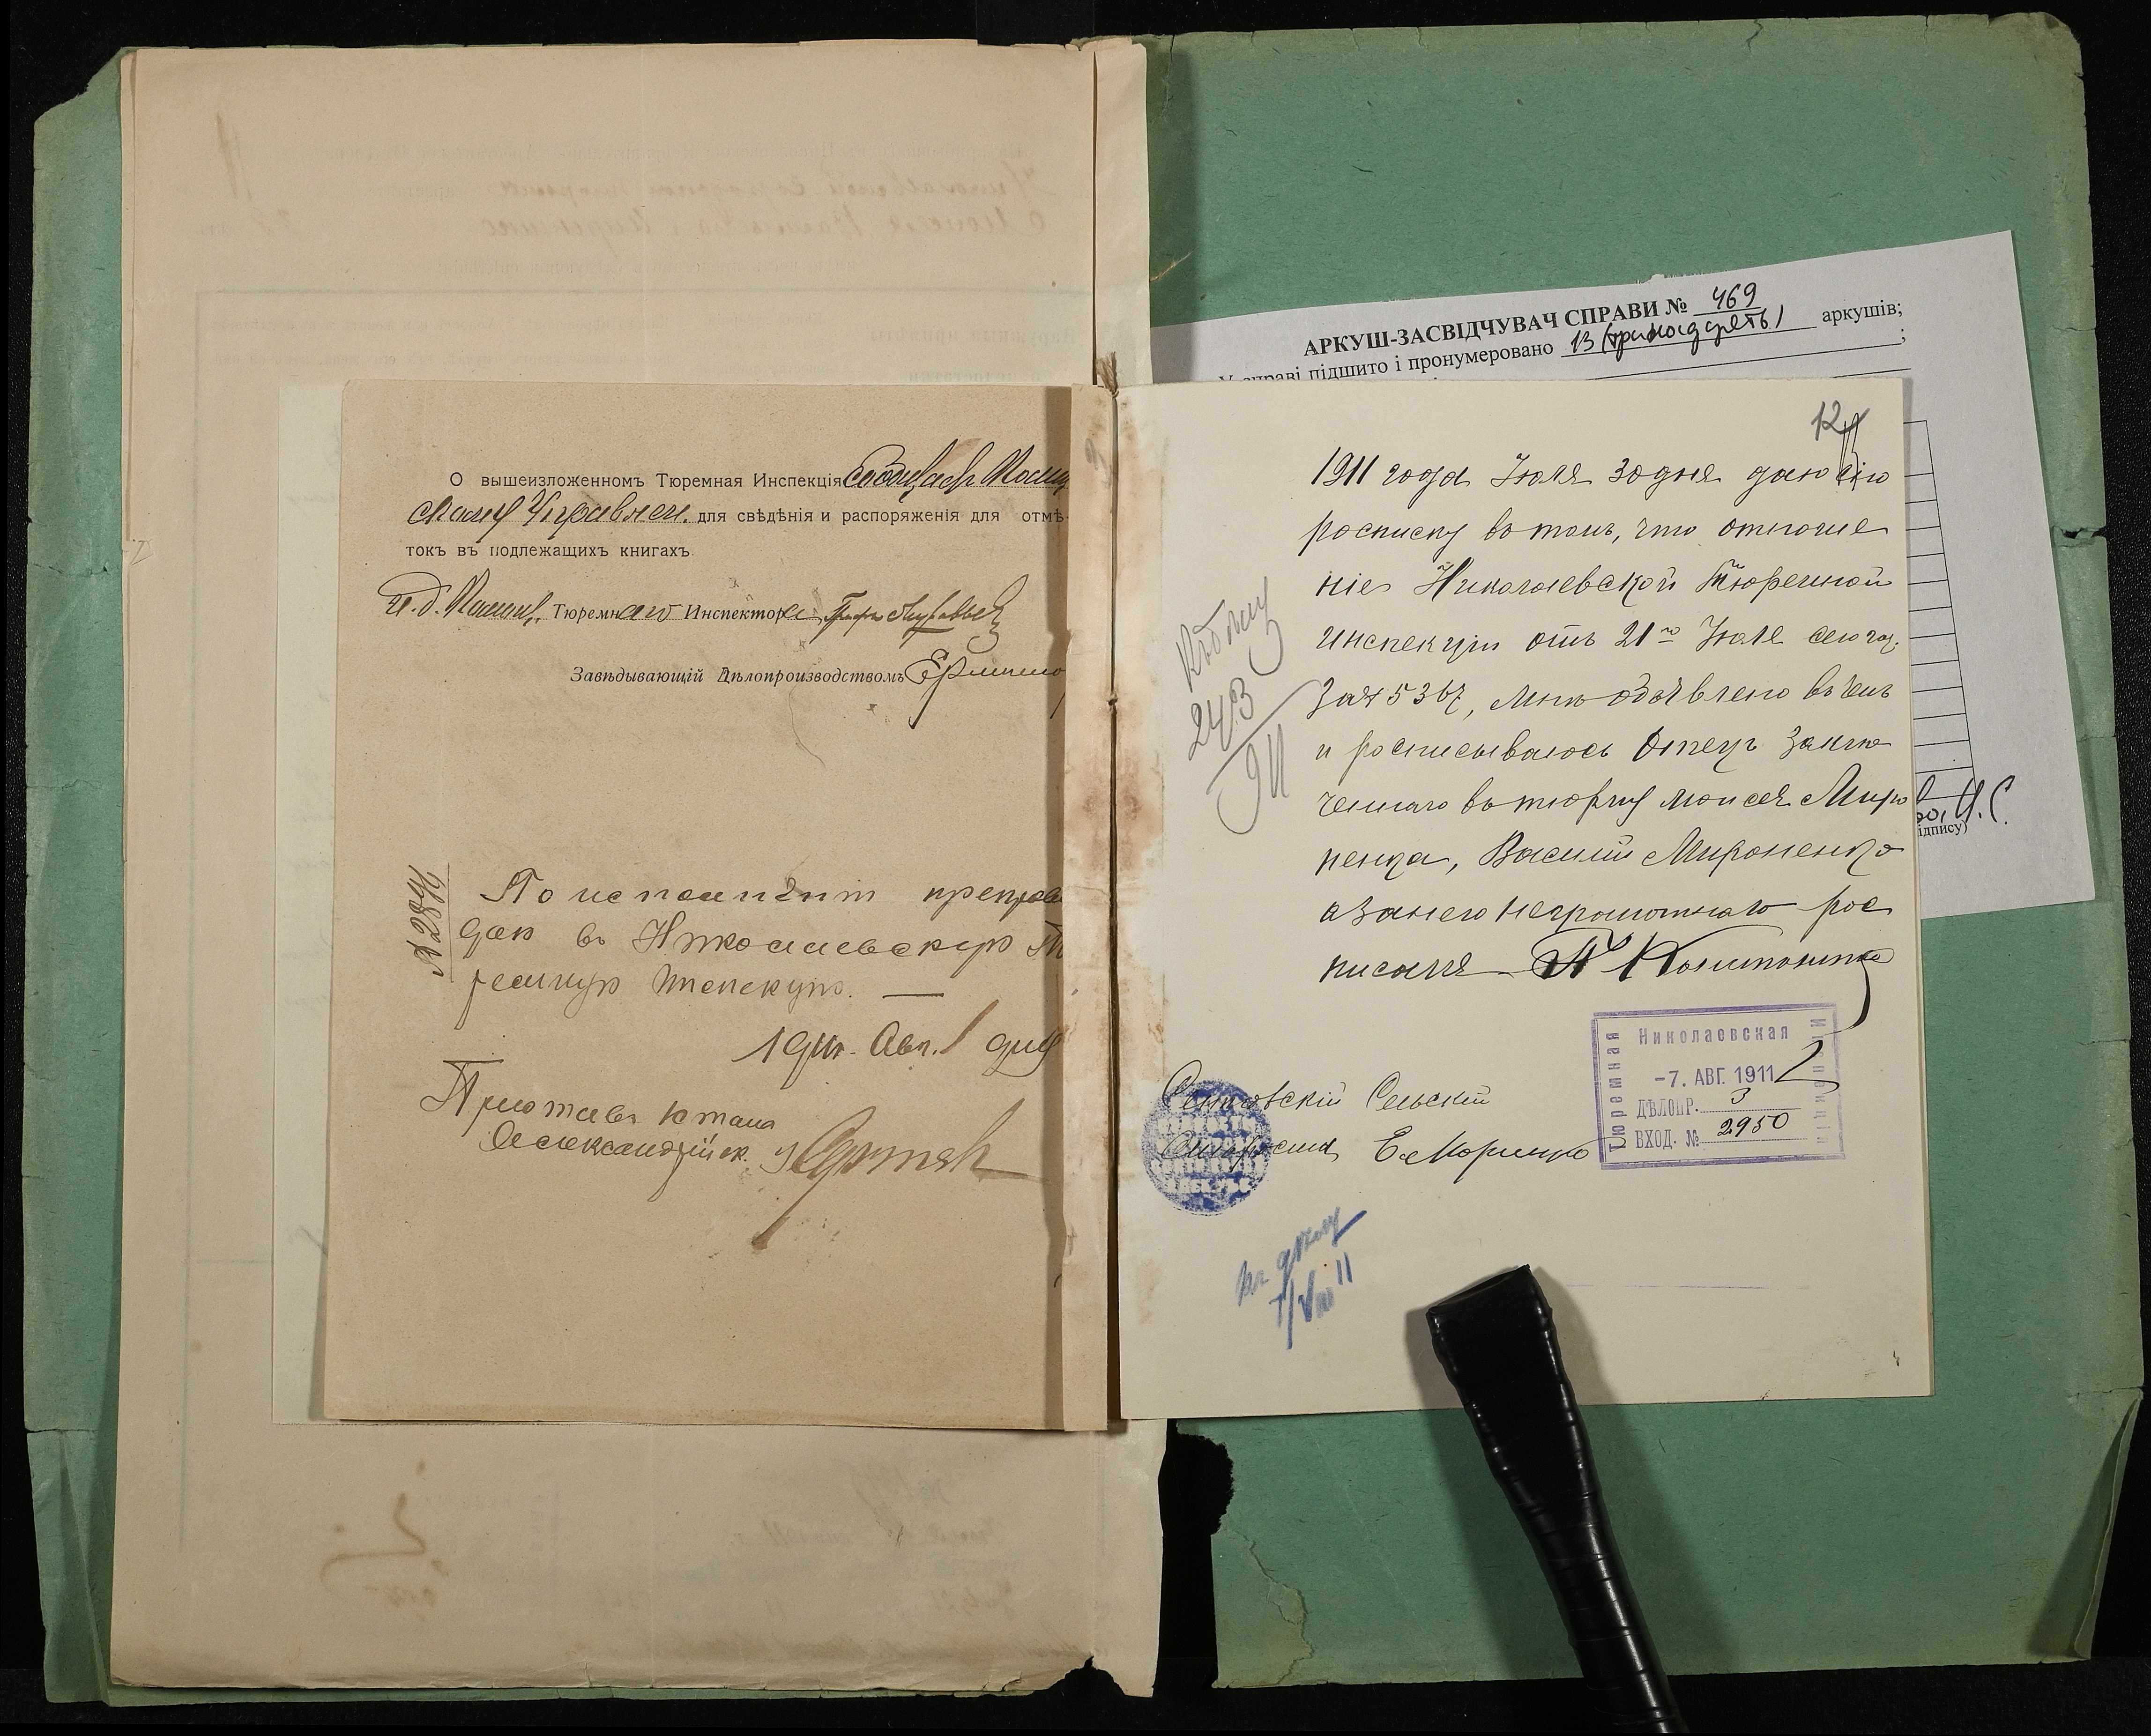 О вышеизложенномъ Тюремная Инспекція сообщаетъ Полиц
скому Управлен. для свѣдѣнія и распоряженія для отмѣ-
токъ въ подлежащихъ книгахъ.
И. д. Тюремнаго Инспектора
Завѣдывающій Дѣлопроизводствомъ
№ 2846
По исполнении препрово
даю въ Николаевскую Тю
ремную Инспекцію. —
1911. Авг. 1 дня
Приставъ 1 стана
Александрійск. у
АРКУШ-ЗАСВІДЧУВАЧ СПРАВИ № 469
У справі підшито і пронумеровано 13 (тринадцять) аркушів;
12
1911 года Іюля 30 дня даю сію
росписку въ томъ, что отноше
ніе Николаевской Тюремной
Инспекціи отъ 21го Іюля сего год.
за № 5367, мнѣ объявлено въ чемъ
и росписываюсь Отецъ заклю
ченнаго въ тюрму Моисея Миро
ненка, Василій Мироненко
а за него неграмотнаго рос
писался
Къ дѣлу
243
911
Сельскій
Староста
Николаевская
Тюремная
Инспекція
-7. АВГ. 1911
ДѢЛОПР. 3
ВХОД. № 2950
Къ дѣлу
7/VIII 11
ідпису)